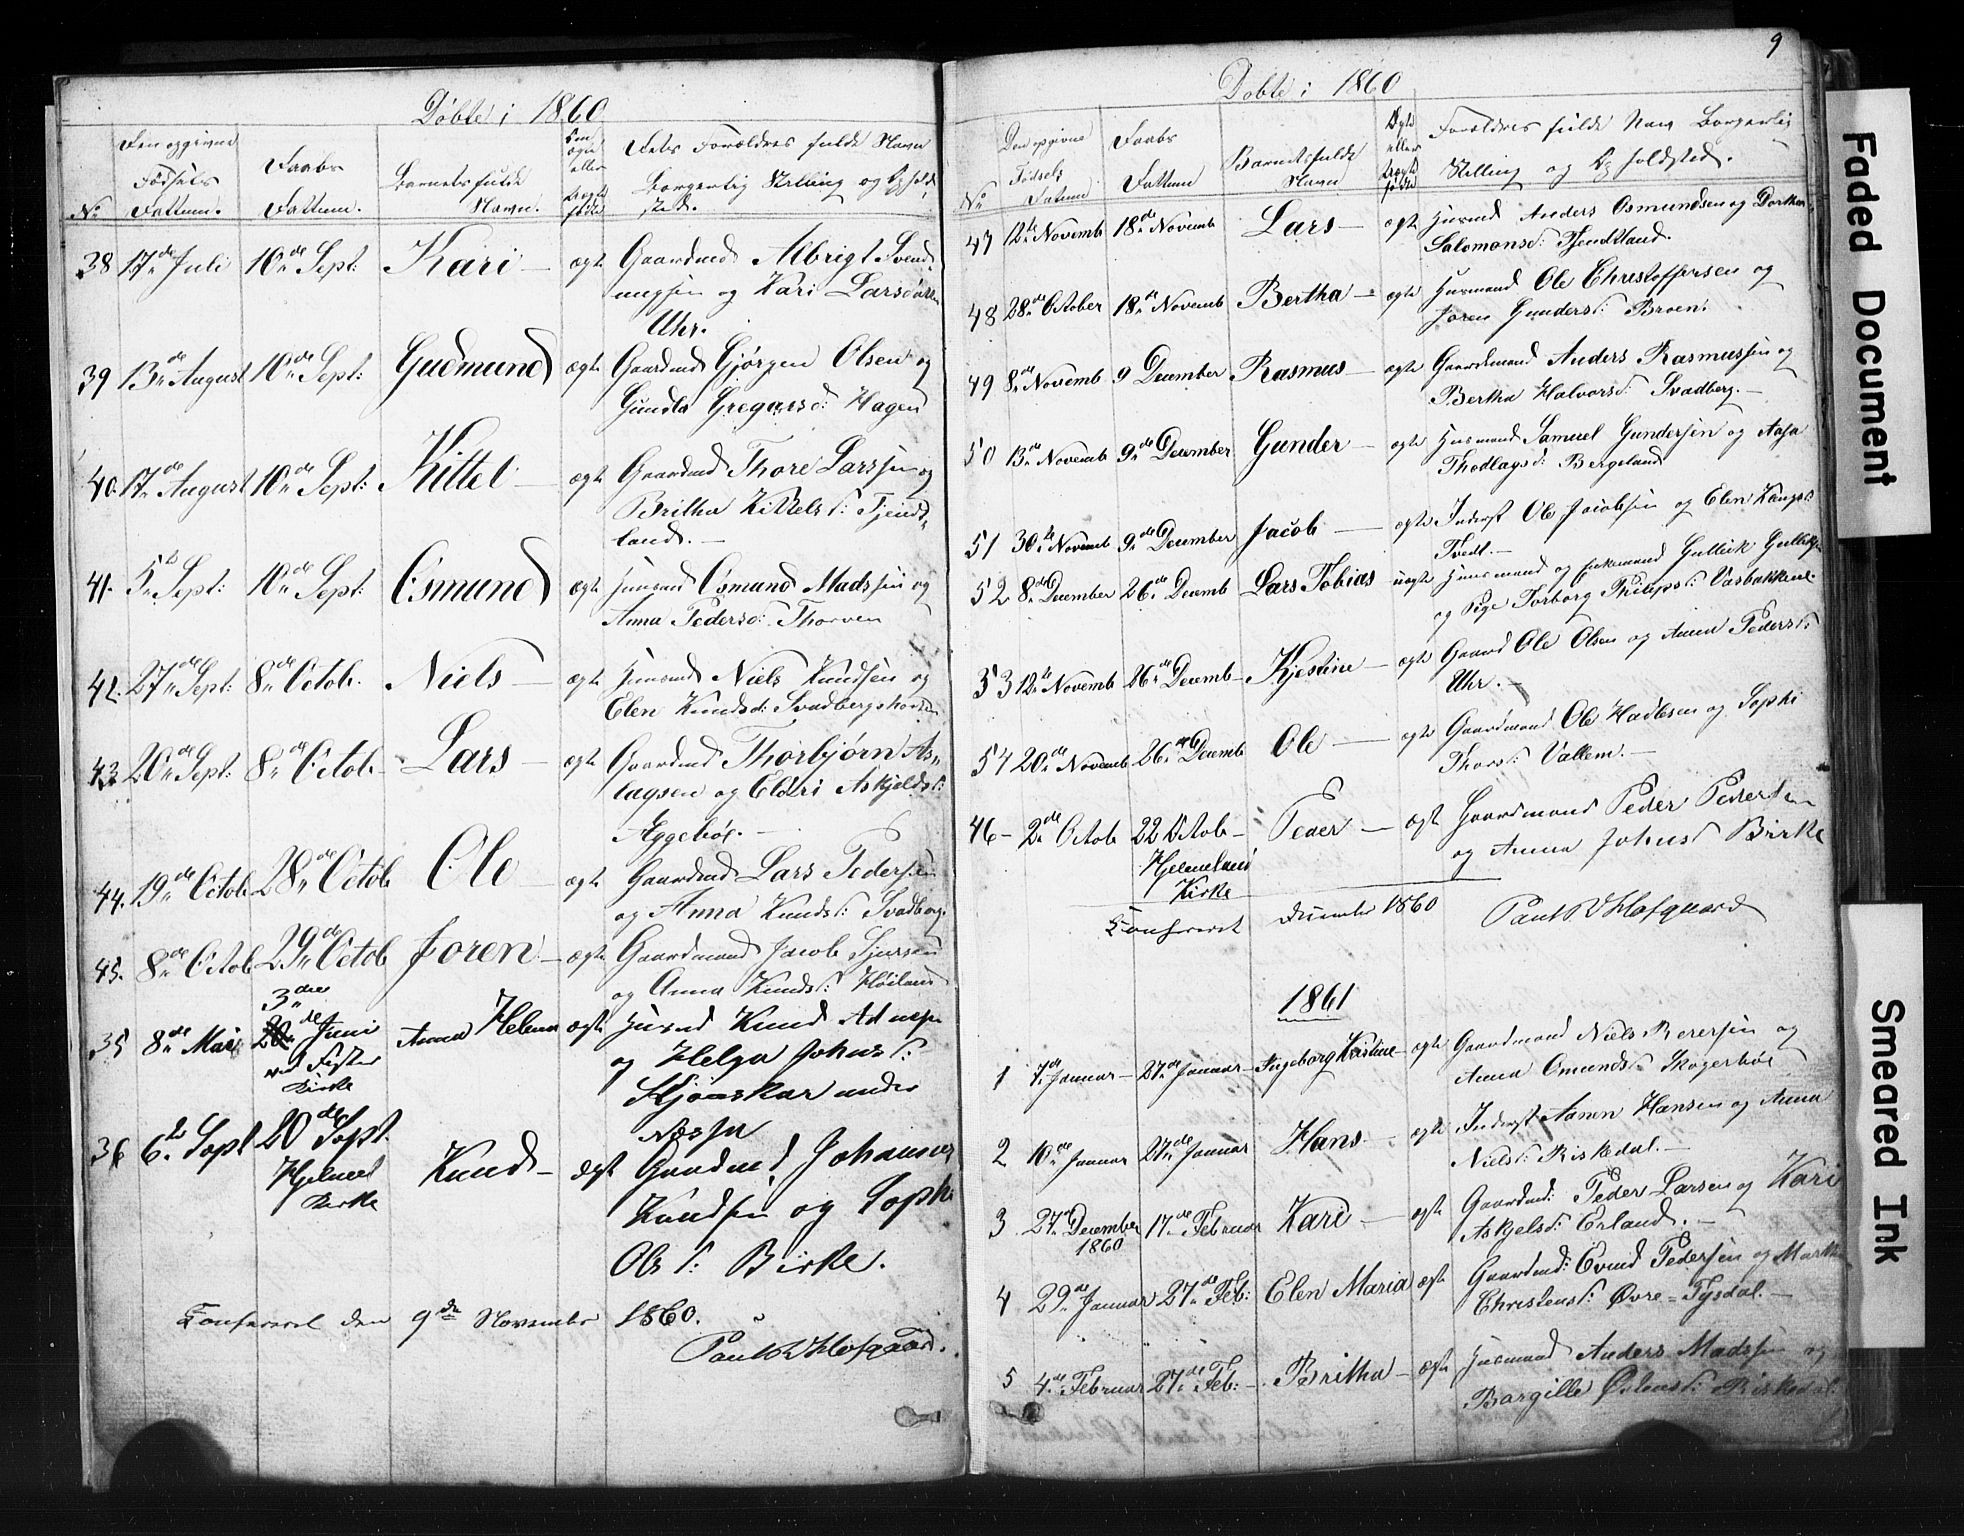 Döbte i 1860
No
Den opgivne Födsels Dattum.
Daabs Dattum.
Barnets fulde Navn.
Om ægte eller uægte födte
Dets Forældres fulde Navn
Borgerlig Stilling og Ophold
sted.
38 17de Juli 10de Sept: Kari — ægte Gaardmd Albrigt Svend
ungsen og Kari Larsdatter
Uhr.
39 13de August 10de Sept: Gudmund ægte Gaardmd Gjörgen Olsen og
Gunda Gregarsd: Hagen
40. 17de August 10de Sept: Kittel — ægte Gaardmd Thore Larssen og
Britha Kittelsd: Tjend
land. —
41. 5te Sept: 10de Sept: Osmund ægte Husmd Osmund Madssen og
Anna Pedersd: Thorven
42. 27de Sept: 8de Octob. Niels — ægte Husmd Niels Knudsen og
Elen Knudsd: Svadbergsholen
43 20de Sept: 8de Octob — Lars — ægte Gaardmd Thorbjörn As
lagsen og Elderi Askjeldsd:
Aggeböe. —
44. 19de Octob 28de Octob Ole — ægte Gaardmd Lars Pedersen
og Anna Knudsd: Svadberg.
45. 8de Octob 29de Octob Joren — ægte Gaardmand Jacob Sjursen
og Anna Knudsd: Höiland
35 8de Mai 3die Juni ved Fister Kirke Anna Helena ægte Husmd Knud
og Helga Johnsd:
under
36 6te Sept 20de Sept. Hjelmel Kirke Knud — ægt Gaardmd, Johannes
Knudsen og Sophi
Olsd: Birke.
Konfereret den 9de November 1860.
Paul V Hofgaard.
9
Döbte i 1860
No
Den opgivne Födsels Datum
Daabs Dattum
Barnets fulde Navn
Ægte eller uægte födte
Forældres fulde Navn Borgerlig
Stilling og Opholdsted.
47 12te Novemb 18de Novemb Lars — ægt Husmd Anders Osmundsen og Dorthea
Salomonsd: Tjendtland.
48 28de October 18de Novemb Bertha — ægte Husmand Ole Christoffersen og
Joren Gundersd: Broen.
49 8de Novemb 9 December Rasmus — ægte Gaardmand Anders Rasmussen og
Bertha Halvorsd: Svadberg. —
50 13de Novemb 9de December Gunder — ægte Husmand Samuel Gundersen og Aasa
Thodlagsd: Bergeland
51 30te Novemb 9de December Jacob — ægte Inderst Ole Jacobsen og Elen
Tvedt. —
52 8de December 26de Decemb Lars Tobias — uægte Husmand og Enkemand Gullick
og Pige Torborg Philipsd: Vasbakkene.
53 12te Novemb 26de Decemb — Kjestine — ægte Gaard Ole Olsen og Anna Pedersd:
Uhr. —
54 20de Novemb 26de Decemb Ole — ægte Gaardmand Ole Hadlesen og Sophi
Thorsd: Vallem. —
46 — 2de Octob 22 Octob — Hjelmeland Kirke Peder — ægt Gaardmand Peder Pedersen
og Anna Johnsd Birke
Konfereret December 1860 Paul V Hofgaard
1861
1 7de Januar — 27de Januar — Ingeborg Kristine — ægte Gaardmand Niels Berersen og
Anna Omundsd: Skogerböe
2 10de Januar 27de Januar Hans. — ægte Inderst Aamen Hansen og Anna
Nielsd: Riskedal. —
3 27de December 1860 17de Februar Kari — ægte Gaardmd: Peder Larsen og Kari
Askjelsd: Erland. —
4 29de Januar 27de Feb: Elen Maria ægte Gaardmd: Evind Pedersen og Martha
Christensd: Övre-Tysdal. —
5 4de Februar 27de Feb: — Britha — ægte Husmand Anders Madssen og
Bargille Riskedal.
Faded Document
Smeared Ink